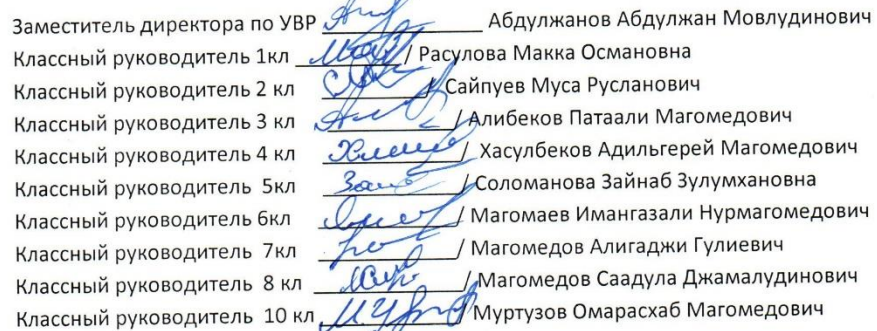 Заместитель директора по УВР ____________ Абдулжанов Абдулжан Мовлудинович
Классный руководитель 1кл ____________/ Расулова Макка Османовна
Классный руководитель 2 кл ____________/ Сайпуев Муса Русланович
Классный руководитель 3 кл ____________/ Алибеков Патаали Магомедович
Классный руководитель 4 кл ____________/ Хасулбеков Адильгерей Магомедович
Классный руководитель 5кл ____________/ Соломанова Зайнаб Зулумхановна
Классный руководитель 6кл ____________/ Магомаев Имангазали Нурмагомедович
Классный руководитель 7кл ____________/ Магомедов Алигаджи Гулиевич
Классный руководитель 8 кл ____________/ Магомедов Саадула Джамалудинович
Классный руководитель 10 кл ____________/ Муртузов Омарасхаб Магомедович